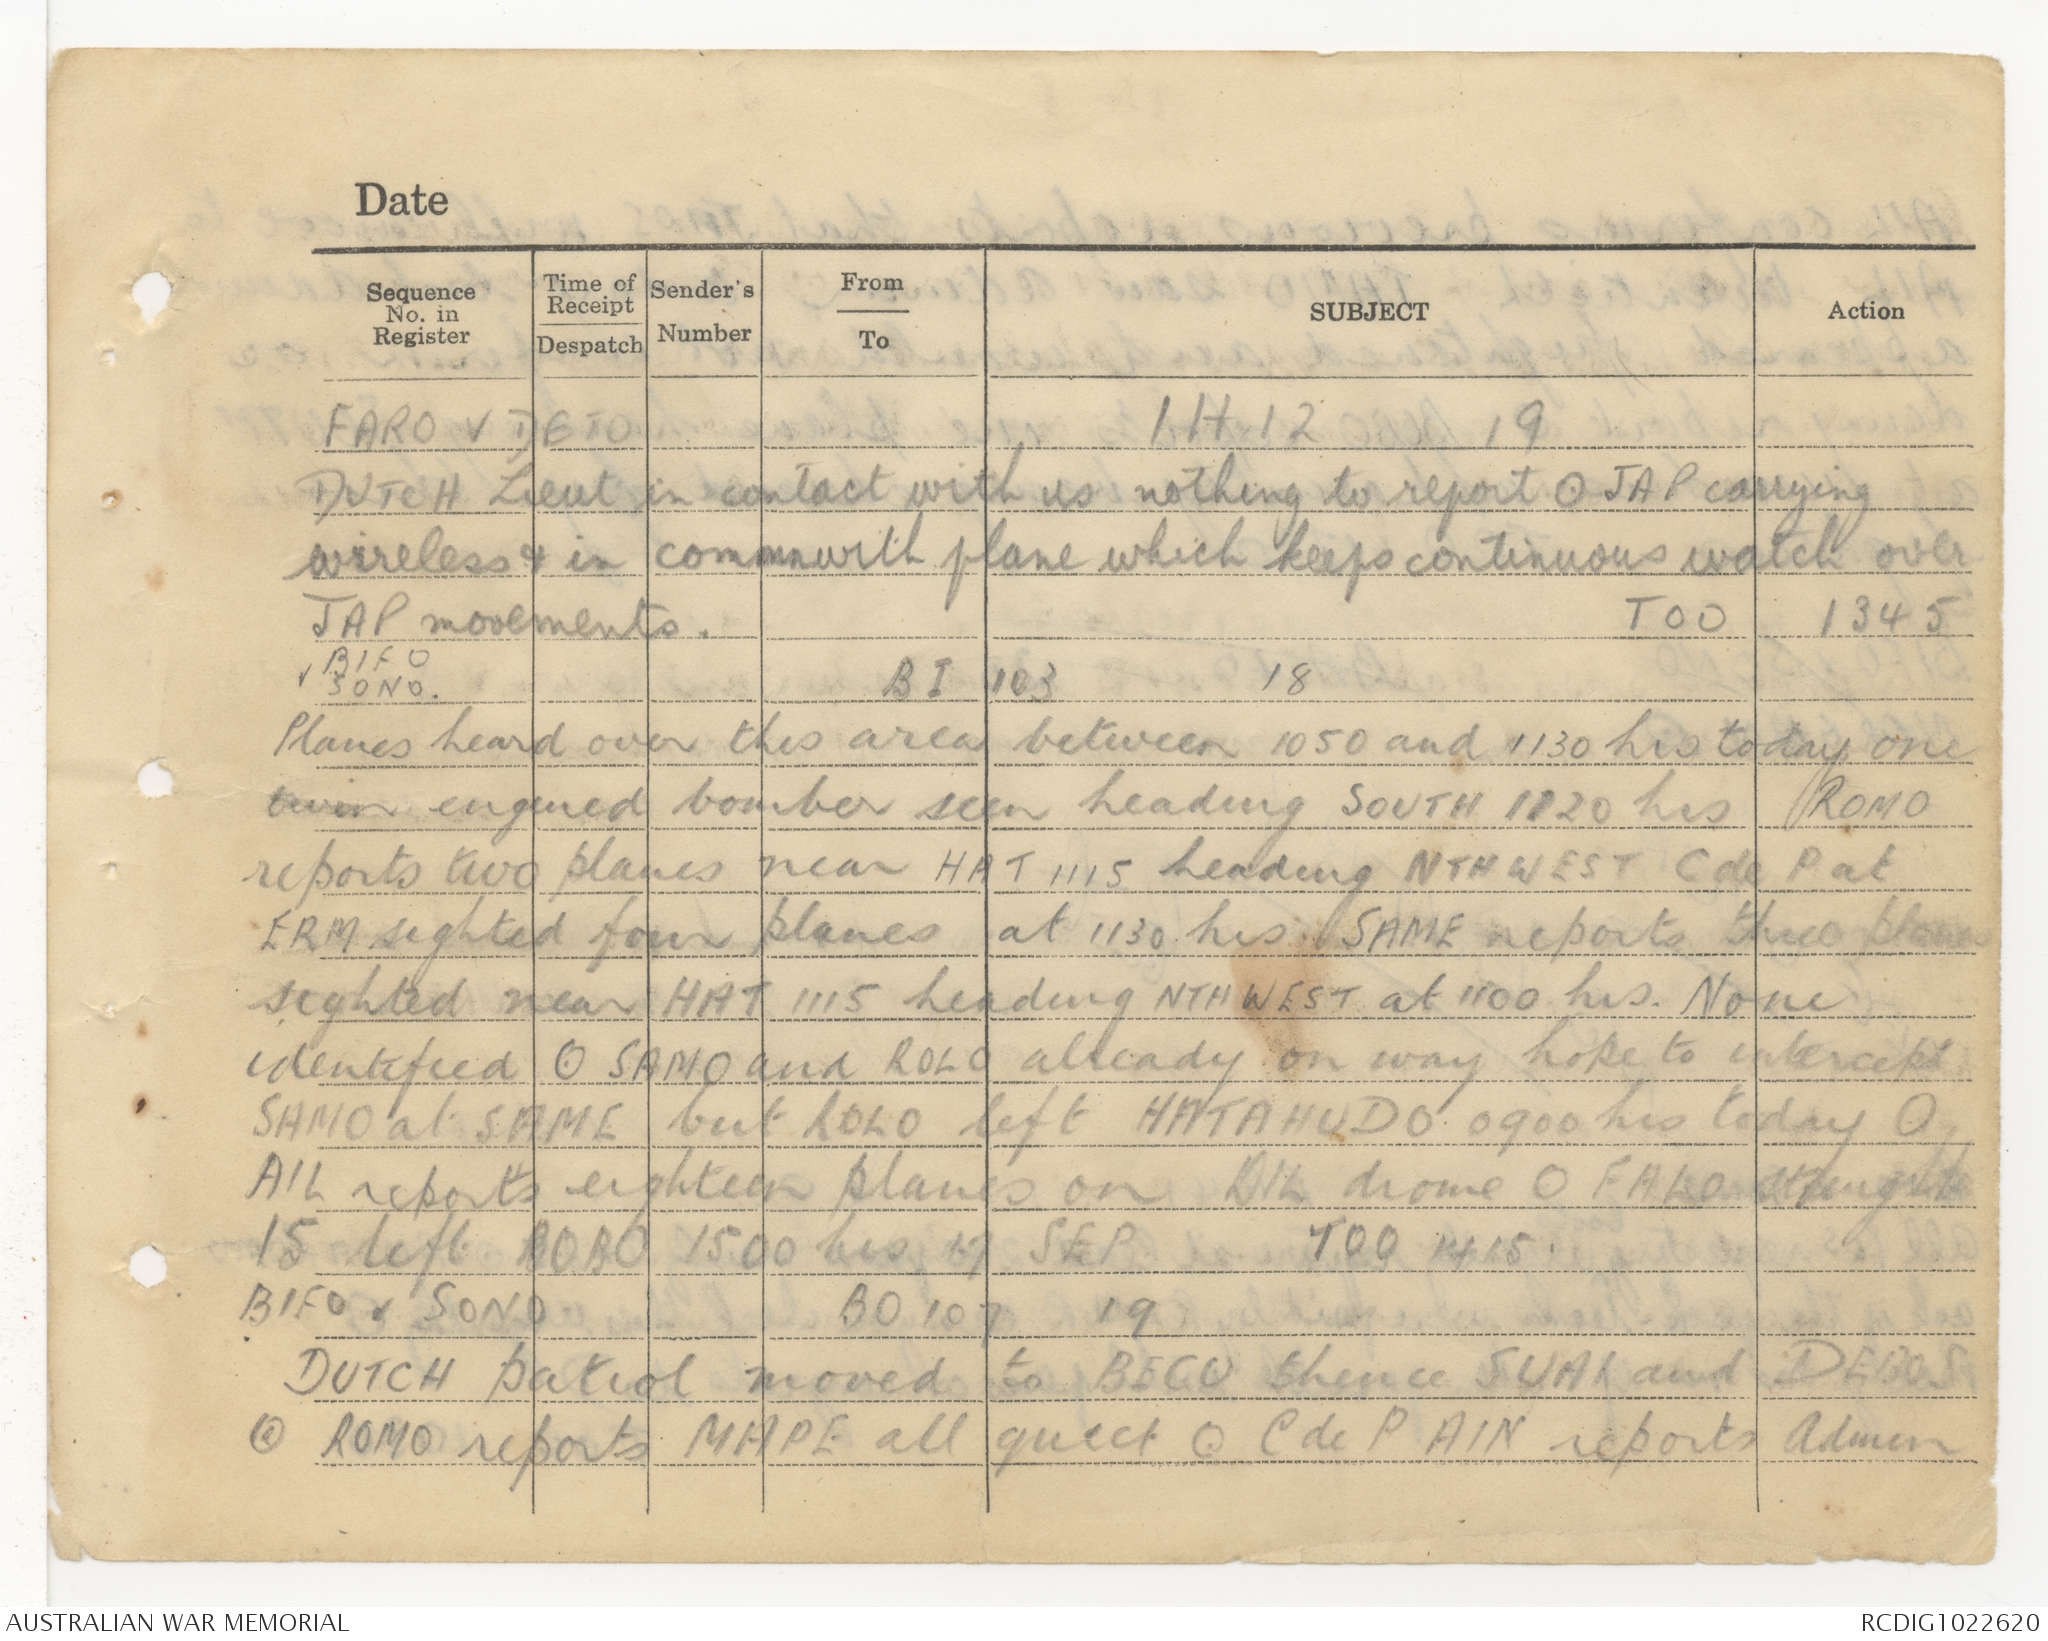 Date
Sequence No. in Register
Time of Receipt
Despatch
Sender's Number
From
To
SUBJECT
Action
FARO V DETO 1H 12 19
DUTCH Lieut in contact with us nothing to report O JAP carrying
wireless & in commn with plane which keeps continuous watch over
JAP movements. TOO 1345
V BIFO
SONO. BI 103 18
Planes heard over this area between 1050 and 1130 hrs today one
twin engined bomber seen heading SOUTH 1120 hrs ROMO
reports two planes near HAT 1115 heading NTHWEST C de P at
ERM sighted four planes at 1130 hrs. SAME reports three planes
sighted near HAT 1115 heading NTHWEST at 1100 hrs. None
identified O SAMO and ROLO already on way hope to intercept
SAMO at SAME but ROLO left HATAHUDO 0900 hrs today O
AIL reports eighteen planes on DIL drome O FALO strength
15 left BOBO 1500 hrs 17 SEP TOO 1415.
BIFO V SONO BO 107 19
DUTCH patrol moved to BECU thence SUAI and DEBOS
O ROMO reports MAPE all quiet O C de P AIN reports Admin
AUSTRALIAN WAR MEMORIAL
RCDIG1022620